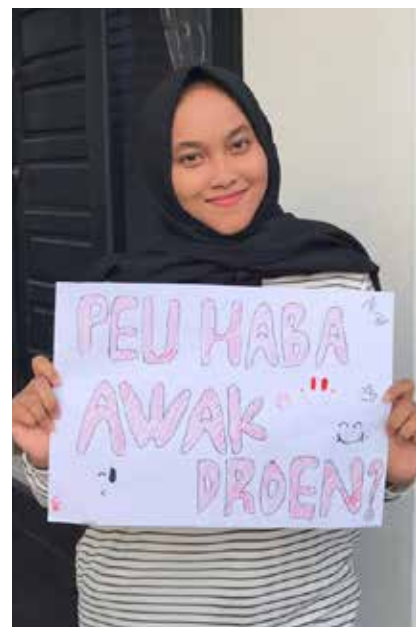 PEU HABA
AWAK
DROEN?